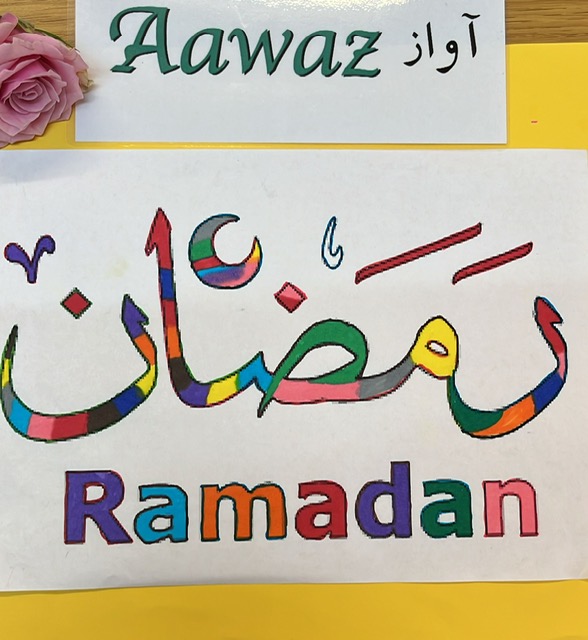 Aawaz آواز
رمضان
Ramadan